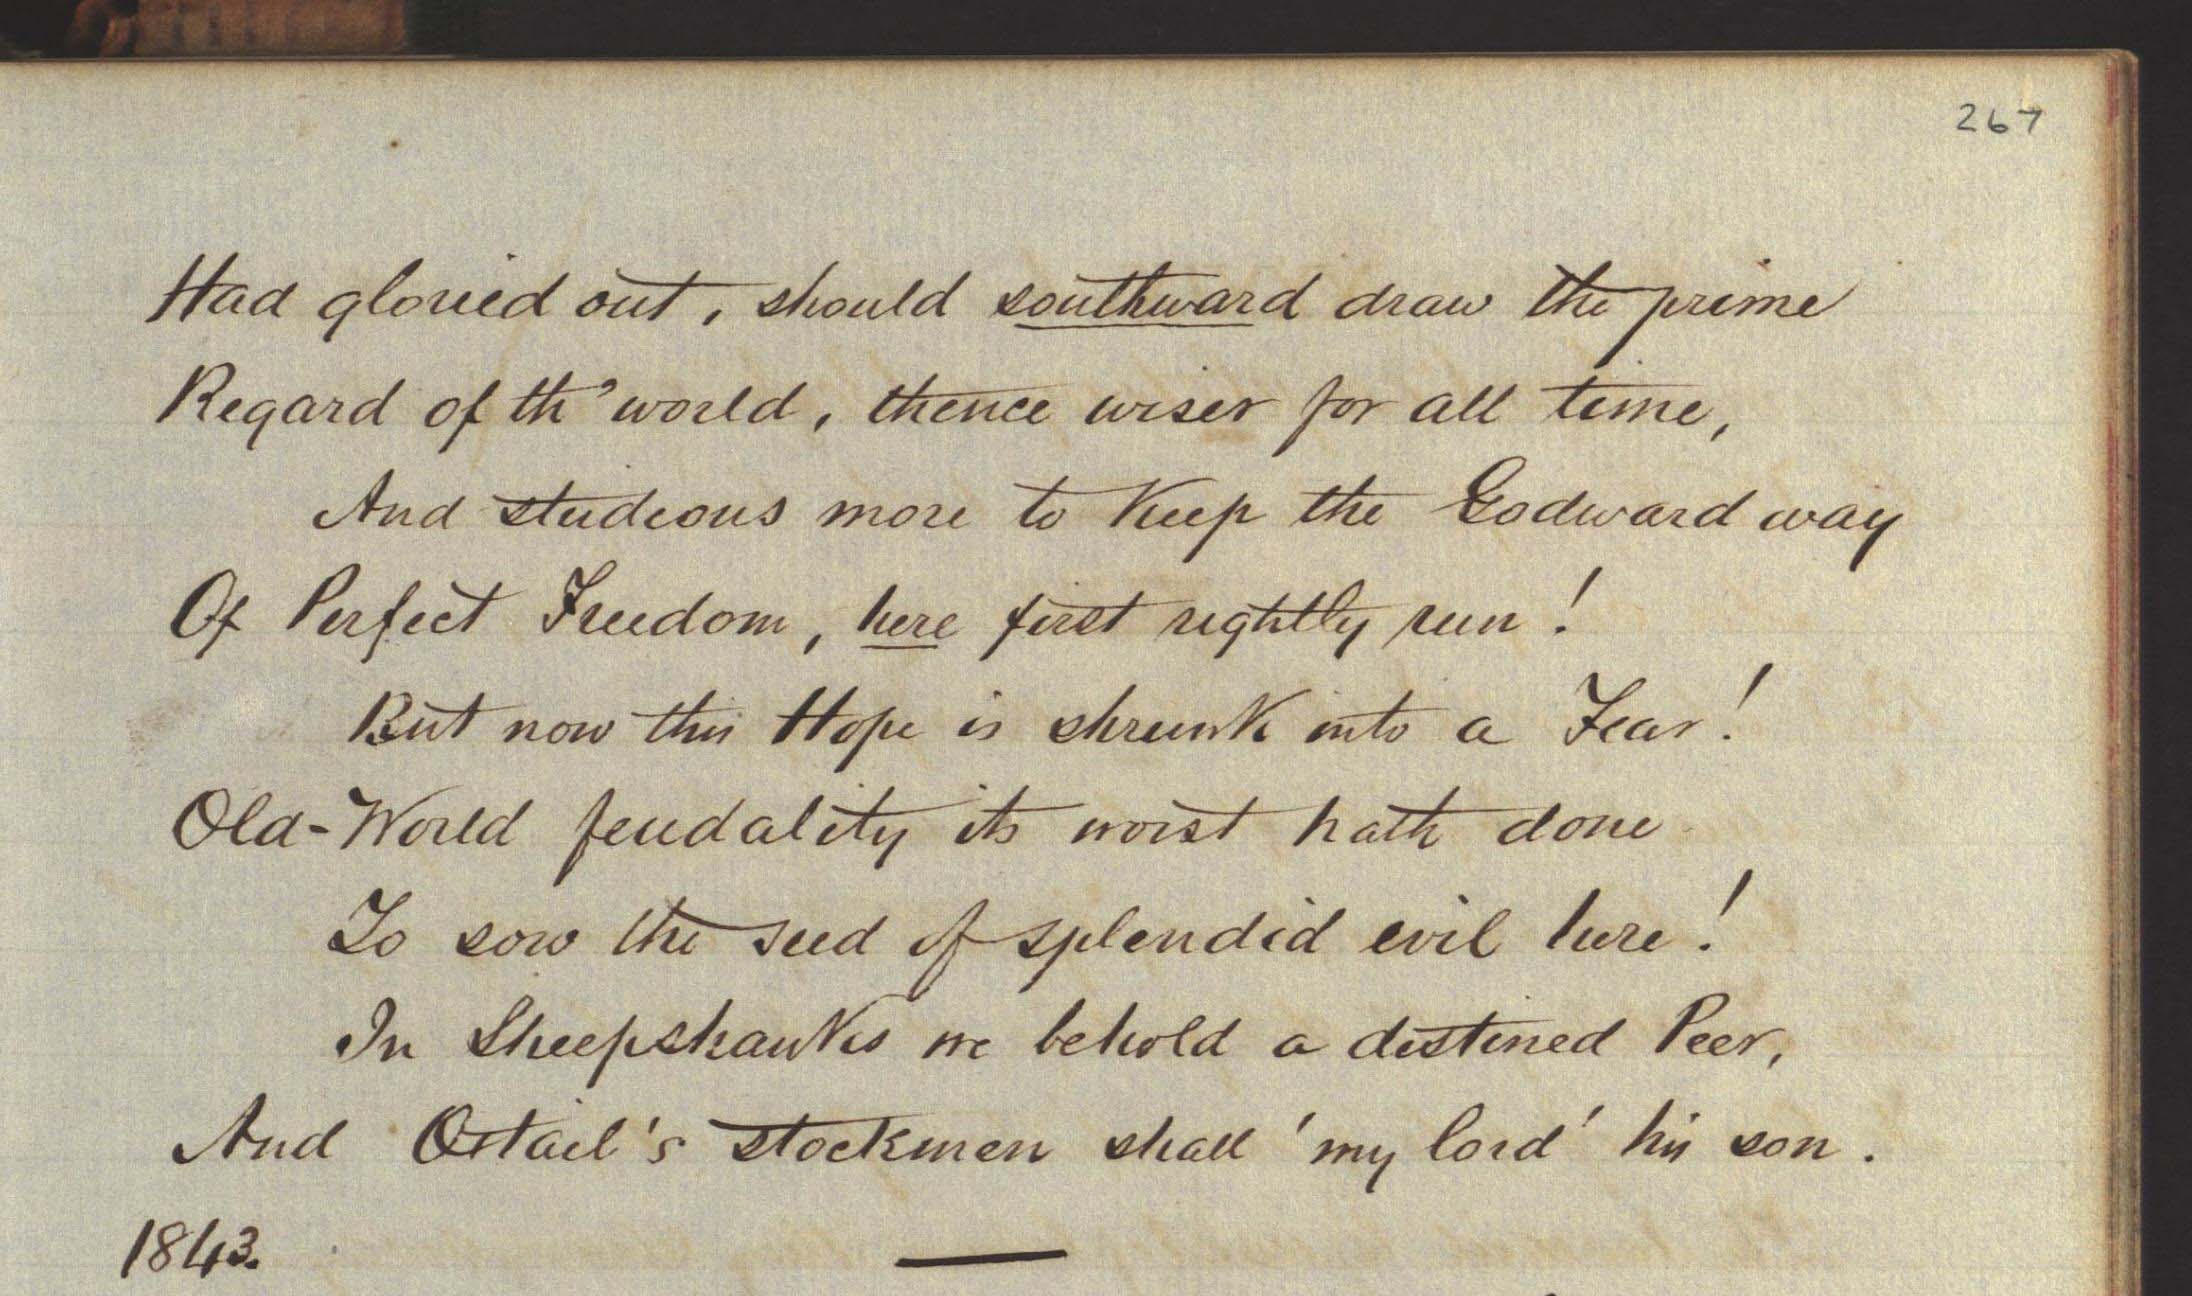 267
Had gloried out, should southward draw the prime
Regard of th' world, thence wiser for all time,
And studious more to keep the Godward way
Of Perfect Freedom, here first rightly run!
But now this Hope is shrunk into a Fear!
Old-World feudality its worst hath done
To sow the seed of splendid evil here!
In Sheepshanks we behold a destined Peer,
And Oxtail's stockmen shall 'my lord' his son.
1843.